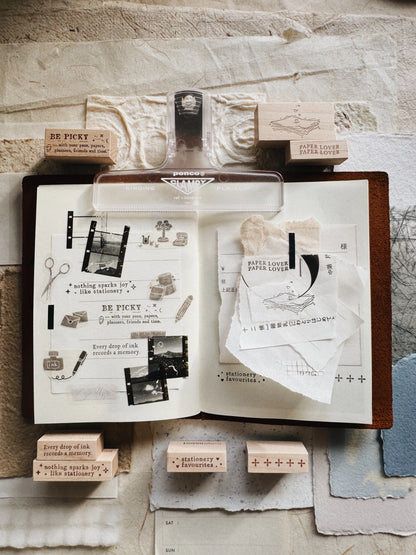 BE PICKY
— with your pens, papers,
planners, friends and time.
PAPER LOVER
PAPER LOVER
penco
CLAMPY
nothing sparks joy
like stationery
BE PICKY
— with your pens, papers,
planners, friends and time.
Every drop of ink
records a memory.
様
PAPER LOVER
PAPER LOVER
stationery
favourites
Every drop of ink
records a memory.
nothing sparks joy
like stationery
stationery
favourites
SAT
SUN